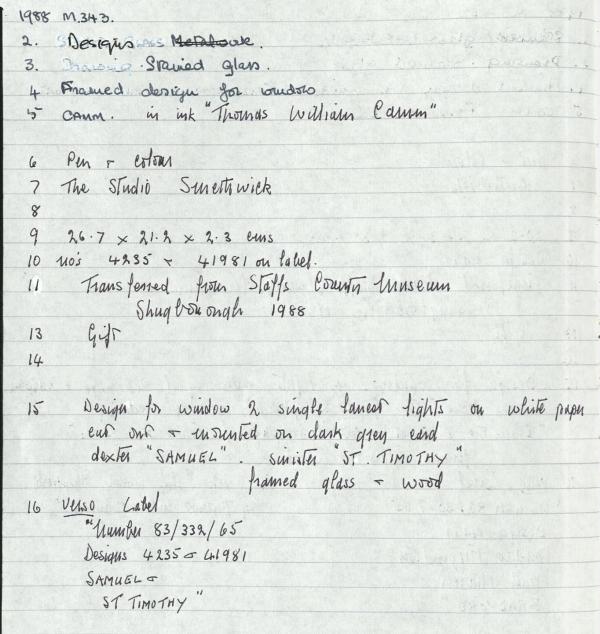 1988 M.343.
2. Designs Metalwork.
3. Drawing. Stained glass.
4 Framed design for window
5 CAMM. in ink "Thomas William Camm"
6 Pen & colour
7 The Studio Smethwick
8
9 26.7 x 21.2 x 2.3 cms
10 no's 4235 & 41981 on label.
11 Transferred from Staffs County Museum
Shugborough 1988
13 Gift
14
15 Design for window 2 single lancet lights on white paper
cut out & mounted on dark grey card
dexter "SAMUEL". sinister "ST. TIMOTHY"
framed glass & wood
16 Verso Label
"Number 83/332/65
Designs 4235 & 41981
SAMUEL &
ST TIMOTHY"